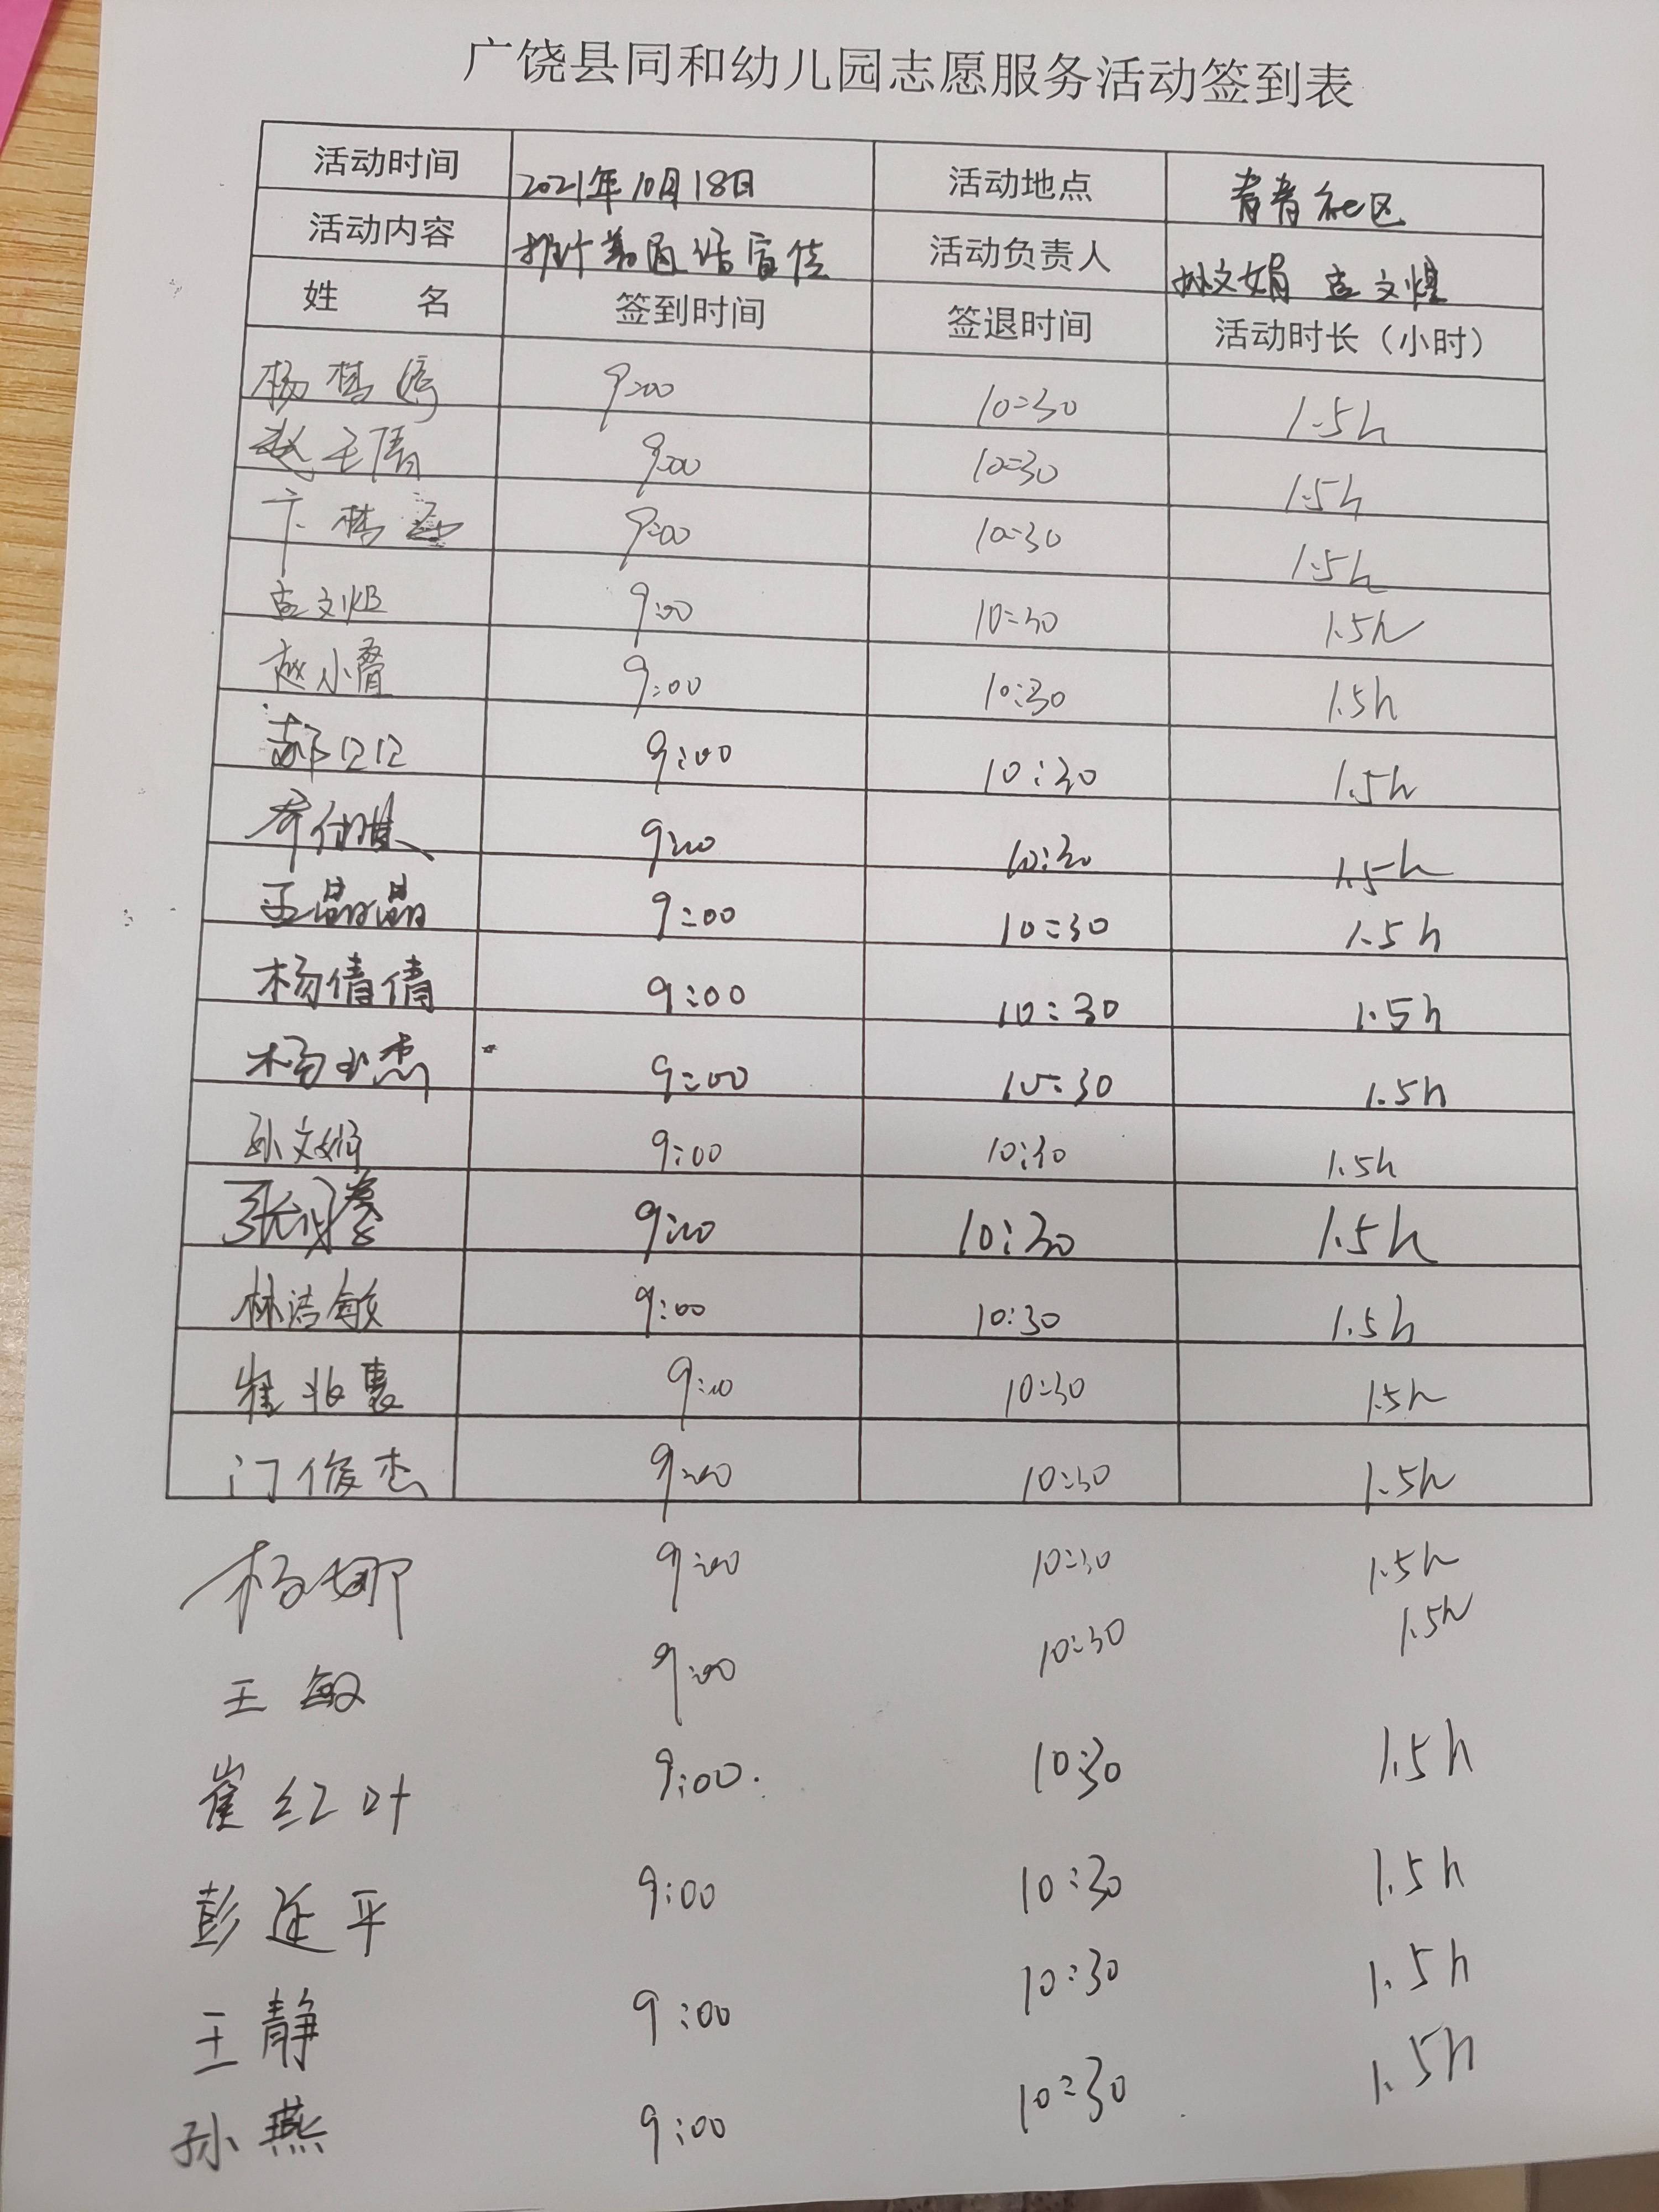 广饶县同和幼儿园志愿服务活动签到表
活动时间 2021年10月18日 活动地点 青青社区
活动内容 推广普通话宣传 活动负责人 孙文娟 孟文煜
姓 名 签到时间 签退时间 活动时长（小时）
杨 9:00 10:30 1.5h
赵 9:00 10:30 1.5h
卞 9:00 10:30 1.5h
孟文煜 9:00 10:30 1.5h
赵小 9:00 10:30 1.5h
郝 9:00 10:30 1.5h
9:00 10:30 1.5h
王晶晶 9:00 10:30 1.5h
杨倩倩 9:00 10:30 1.5h
杨 杰 9:00 10:30 1.5h
孙文娟 9:00 10:30 1.5h
张 9:00 10:30 1.5h
林洁敏 9:00 10:30 1.5h
9:00 10:30 1.5h
门俊杰 9:00 10:30 1.5h
杨娜 9:00 10:30 1.5h
王敏 9:00 10:30 1.5h
崔红叶 9:00. 10:30 1.5h
彭延平 9:00 10:30 1.5h
王静 9:00 10:30 1.5h
孙燕 9:00 10:30 1.5h